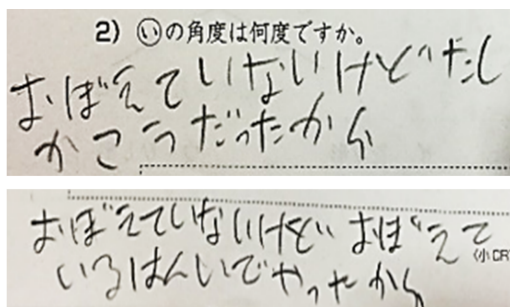 2) ㋑の角度は何度ですか。
おぼえていないけどたし
かこうだったから
おぼえていないけど おぼえて
いるはんいでやったから
〈小CR